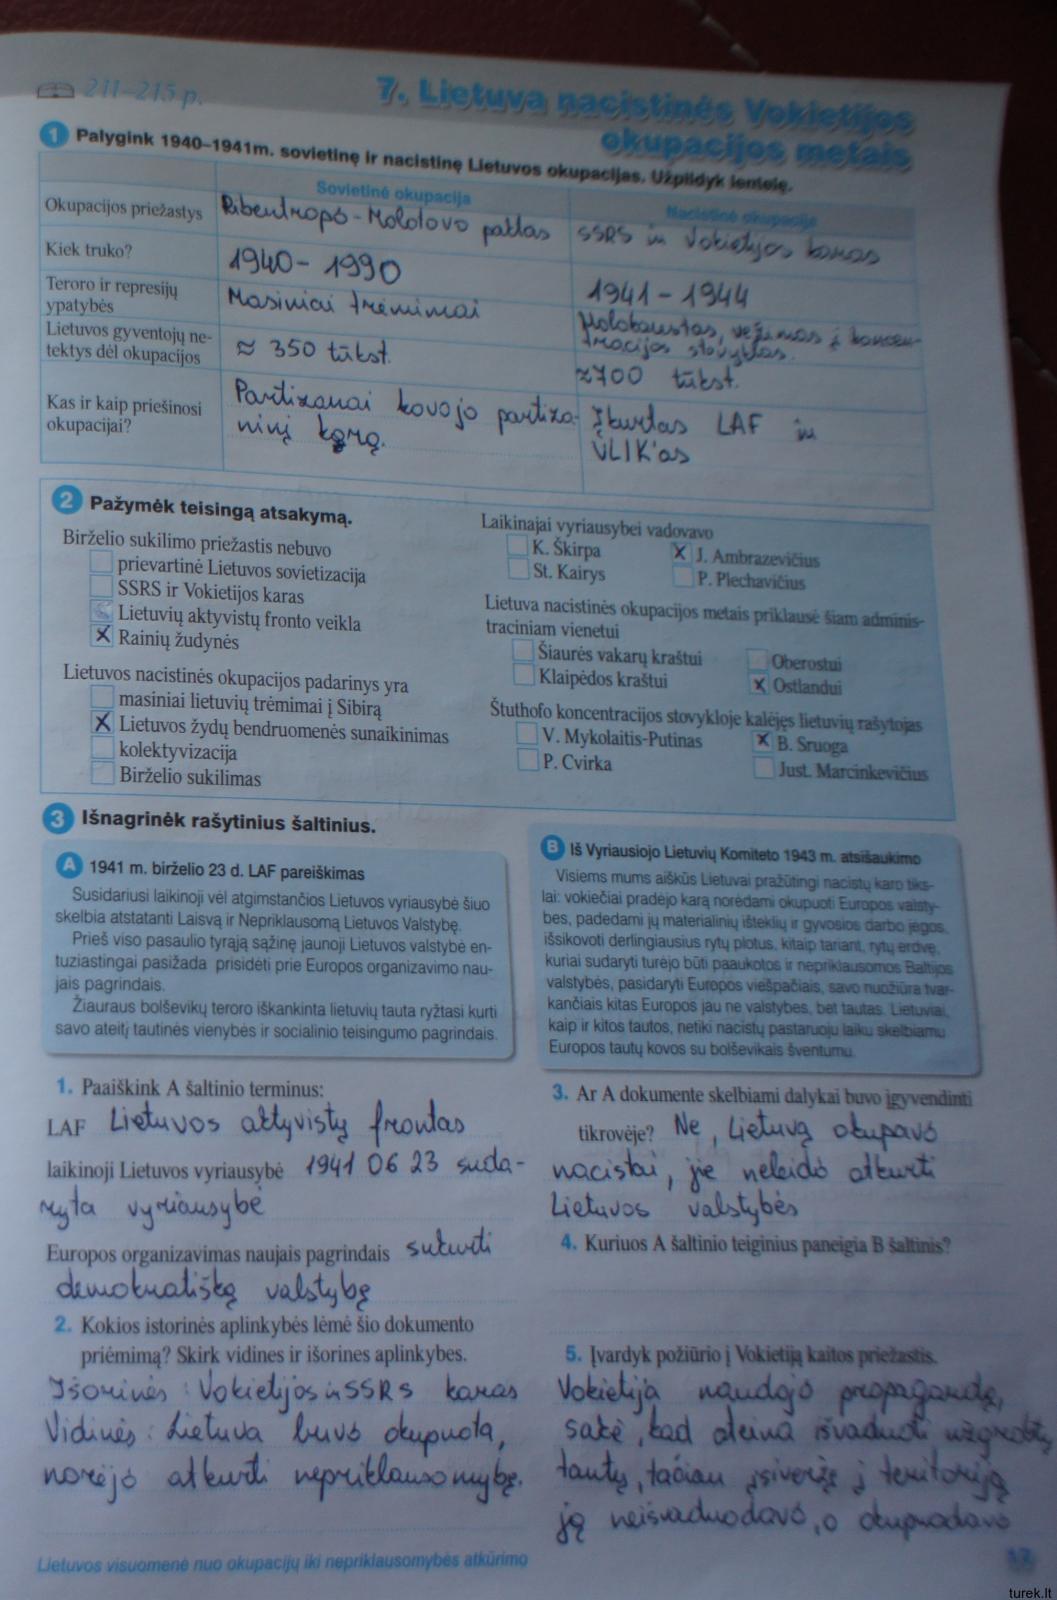 211–215 p.
7. Lietuva nacistinės Vokietijos
okupacijos metais
1 Palygink 1940–1941m. sovietinę ir nacistinę Lietuvos okupacijas. Užpildyk lentelę.
Sovietinė okupacija
Nacistinė okupacija
Okupacijos priežastys
Ribentropo-Molotovo paktas
SSRS ir Vokietijos karas
Kiek truko?
1940 - 1990
1941 - 1944
Teroro ir represijų
ypatybės
Masiniai trėmimai
Holokaustas, vežimas į koncen-
tracijos stovyklas.
Lietuvos gyventojų ne-
tektys dėl okupacijos
≈ 350 tūkst.
≈700 tūkst.
Kas ir kaip priešinosi
okupacijai?
Partizanai kovojo partiza-
ninį karą.
Įkurtas LAF ir
VLIK'as
2 Pažymėk teisingą atsakymą.
Birželio sukilimo priežastis nebuvo
prievartinė Lietuvos sovietizacija
SSRS ir Vokietijos karas
Lietuvių aktyvistų fronto veikla
X Rainių žudynės
Lietuvos nacistinės okupacijos padarinys yra
masiniai lietuvių trėmimai į Sibirą
X Lietuvos žydų bendruomenės sunaikinimas
kolektyvizacija
Birželio sukilimas
Laikinajai vyriausybei vadovavo
K. Škirpa X J. Ambrazevičius
St. Kairys P. Plechavičius
Lietuva nacistinės okupacijos metais priklausė šiam adminis-
traciniam vienetui
Šiaurės vakarų kraštui Oberostui
Klaipėdos kraštui X Ostlandui
Štuthofo koncentracijos stovykloje kalėjęs lietuvių rašytojas
V. Mykolaitis-Putinas X B. Sruoga
P. Cvirka Just. Marcinkevičius
3 Išnagrinėk rašytinius šaltinius.
A 1941 m. birželio 23 d. LAF pareiškimas
Susidariusi laikinoji vėl atgimstančios Lietuvos vyriausybė šiuo
skelbia atstatanti Laisvą ir Nepriklausomą Lietuvos Valstybę.
Prieš viso pasaulio tyrąją sąžinę jaunoji Lietuvos valstybė en-
tuziastingai pasižada prisidėti prie Europos organizavimo nau-
jais pagrindais.
Žiauraus bolševikų teroro iškankinta lietuvių tauta ryžtasi kurti
savo ateitį tautinės vienybės ir socialinio teisingumo pagrindais.
B Iš Vyriausiojo Lietuvių Komiteto 1943 m. atsišaukimo
Visiems mums aiškūs Lietuvai pražūtingi nacistų karo tiks-
lai: vokiečiai pradėjo karą norėdami okupuoti Europos valsty-
bes, padedami jų materialinių išteklių ir gyvosios darbo jėgos,
išsikovoti derlingiausius rytų plotus, kitaip tariant, rytų erdvę,
kuriai sudaryti turėjo būti paaukotos ir nepriklausomos Baltijos
valstybės, pasidaryti Europos viešpačiais, savo nuožiūra tvar-
kančiais kitas Europos jau ne valstybes, bet tautas. Lietuviai,
kaip ir kitos tautos, netiki nacistų pastaruoju laiku skelbiamu
Europos tautų kovos su bolševikais šventumu.
1. Paaiškink A šaltinio terminus:
LAF Lietuvos aktyvistų frontas
laikinoji Lietuvos vyriausybė 1941 06 23 suda-
ryta vyriausybė
Europos organizavimas naujais pagrindais sukurti
demokratišką valstybę
2. Kokios istorinės aplinkybės lėmė šio dokumento
priėmimą? Skirk vidines ir išorines aplinkybes.
Išorinės: Vokietijos ir SSRS karas
Vidinės: Lietuva buvo okupuota,
norėjo atkurti nepriklausomybę.
3. Ar A dokumente skelbiami dalykai buvo įgyvendinti
tikrovėje? Ne, Lietuvą okupavo
nacistai, jie neleido atkurti
Lietuvos valstybės
4. Kuriuos A šaltinio teiginius paneigia B šaltinis?
5. Įvardyk požiūrio į Vokietiją kaitos priežastis.
Vokietija naudojo propagandą,
sakė, kad ateina išvaduoti užgrobtų
tautų, tačiau įsiveržę į teritoriją
ją neišvaduodavo, o okupuodavo
Lietuvos visuomenė nuo okupacijų iki nepriklausomybės atkūrimo
17
turek.lt